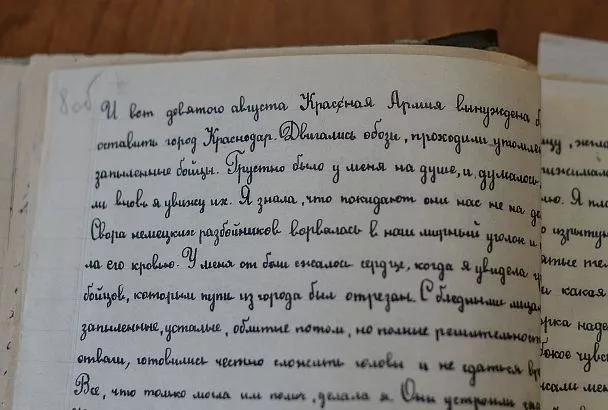 8 об
И вот девятого августа Красная Армия вынуждена
оставить город Краснодар. Двигались обозы, проходили утомлен
запыленные бойцы. Грустно было у меня на душе, и, думалось,
ли вновь я увижу их. Я знала, что покидают они нас не на до
Свора немецких разбойников ворвалась в наш мирный уголок и
ла его кровью. У меня от боли сжалось сердце, когда я увидела
бойцов, которым путь из города был отрезан. С бледными лица
запыленные, усталые, облитые потом, но полные решительност
отваги, готовились честно сложить головы и не сдаться вр
Все, что только могла им помоч, делала я. Они устроили